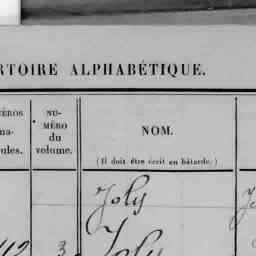 RTOIRE ALPHABÉTIQUE.
ÉROS
ma-
ules.
NU-
MÉRO
du
volume.
NOM.
(Il doit être écrit en bâtarde.)
Joly
3 Joly